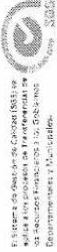 El Sistema de Gestión de Calidad (SGS) se
aplica a los procesos de Transferencias de
los Recursos Financieros a los Gobiernos
Departamentales y Municipales.
SGS